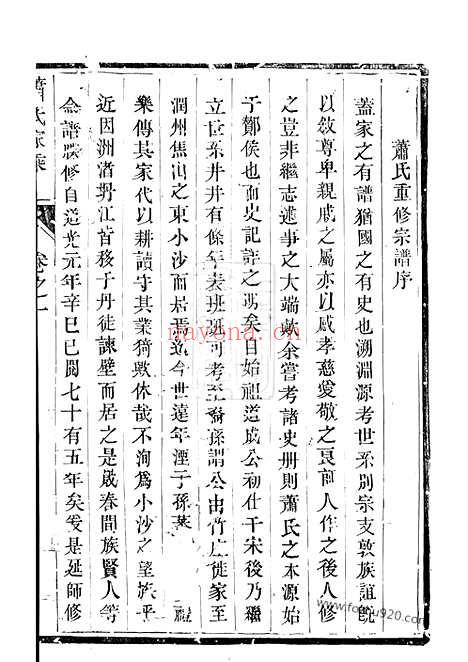 蕭氏重修宗譜序
蓋家之有譜猶國之有史也溯淵源考世系別宗支敦族誼旣
以敘尊卑親戚之屬亦以感孝慈愛敬之良前人作之後人修
之豈非繼志述事之大端歟余嘗考諸史册則蕭氏之本源始
于鄭侯也而史記詳之矣自始祖道成公初仕于宋後乃繼
立世系井井有條年表班班可考至裔孫謂公出竹 徙家至
潤州焦山之東小沙而居焉迄今世遠年湮子孫葉 禮
樂傳其家代以耕讀守其業猗歟休哉不洵爲小沙之望族乎
近因洲渚坍江首移于丹徒諫壁而居之是歲春間族賢人等
念譜牒修自道光元年辛巳已閱七十有五年矣爰是延師修
蕭氏家乘
卷之一
nayona.cn
www.foxhu920.com